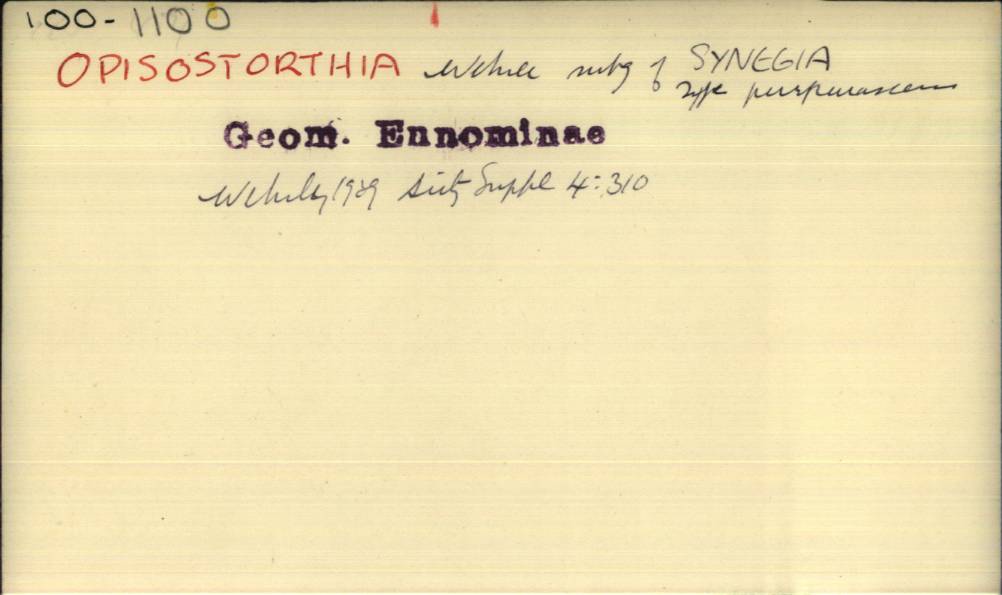 100-1100
OPISOSTORTHIA Wehrli subg of SYNEGIA
Type purpurascens
Geom. Ennominae
Wehrli, 1939 Seitz Suppl 4:310